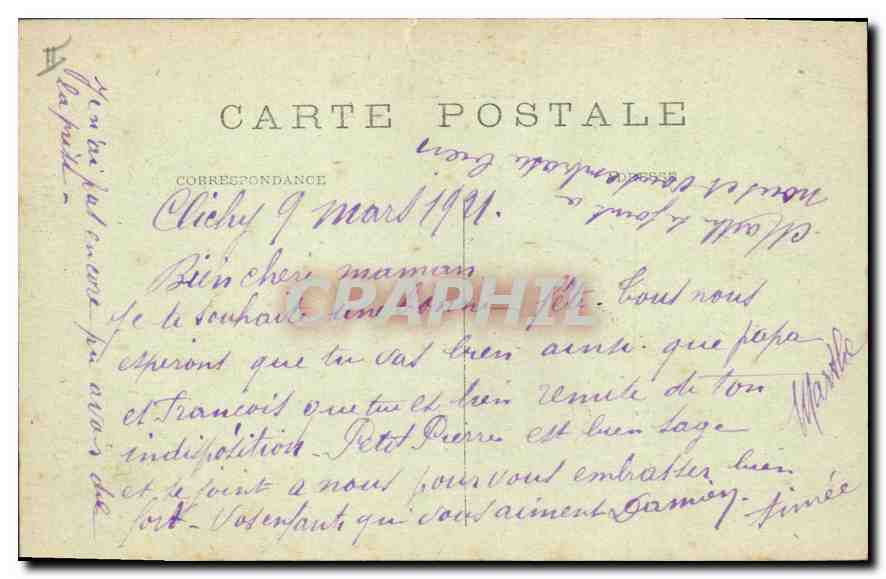 CARTE POSTALE
CORRESPONDANCE
ADRESSE
Clichy 9 mars 1921.
Bien chere maman
Je te souhaite une bonne fête. Tous nous
esperons que tu vas bien ainsi que papa
et François que tu es bien remise de ton
indisposition. Petit Pierre est bien sage
et se joint a nous pour vous embrasser bien
fort. Vos enfants qui vous aiment Damien. Aimée
Marthe
Marthe se joint a
nous et vous embrasse bien
Je n'ai pas encore pu avoir de
la
CPAPHIL